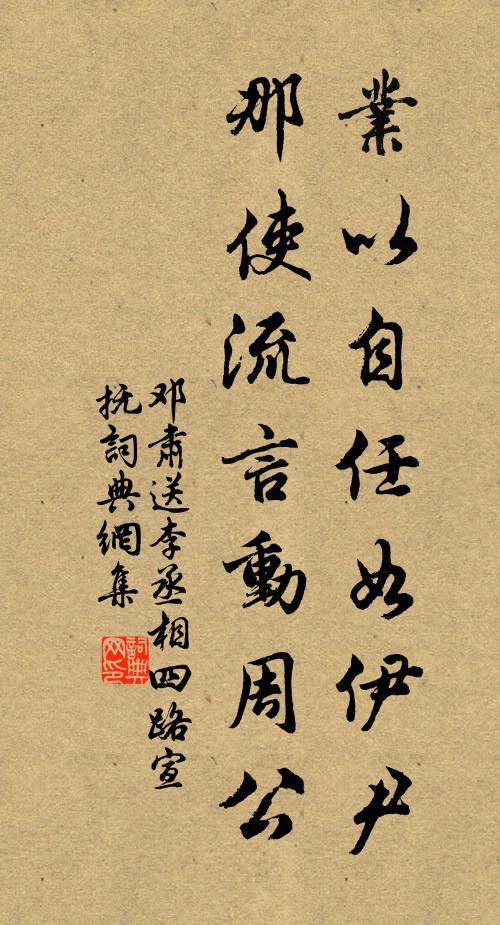 業以自任如伊尹
那使流言動周公
邓肅送李丞相四路宣
抚詞典網集
詞典网印